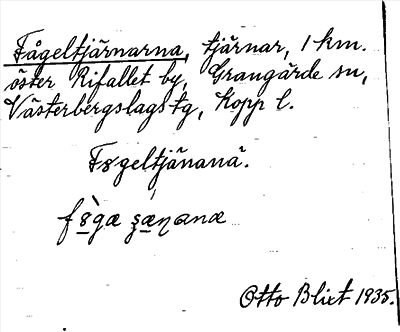 Fågeltjärnarna, tjärnar, 1 km.
öster Rifallet by, Grangärde sn,
Västerbergslags tg, Kopp l.
Fɞgeltjänanä.
fɞ̀gæ ʂæɳanæ
Otto Blixt 1935.